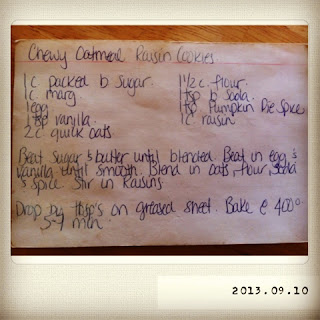 Chewy Oatmeal Raisin Cookies
1c packed b Sugar.
1c. marg
1egg
1tsp vanilla
2c quick oats
1 1/2 c. flour.
1tsp b. Soda.
1tsp Pumpkin Pie Spice
1c raisin
Beat Sugar & butter until blended. Beat in egg &
vanilla until smooth. Blend in oats, flour, Soda
& spice. Stir in Raisins.
Drop by tbsp's on greased sheet. Bake @ 400°
5-7 min.
2013.09.10